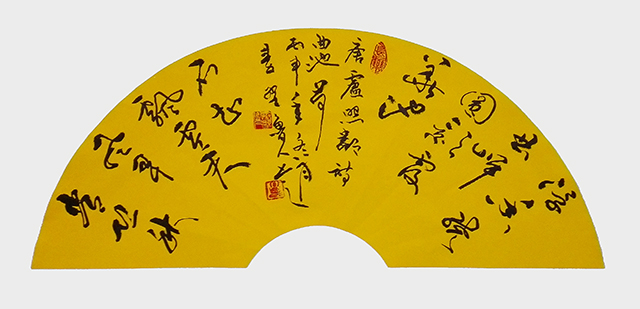 浮香繞
曲岸
圓影覆
華池
常恐秋
風早
飄零君
不知
唐盧照鄰詩
曲池荷
丙申年冬月